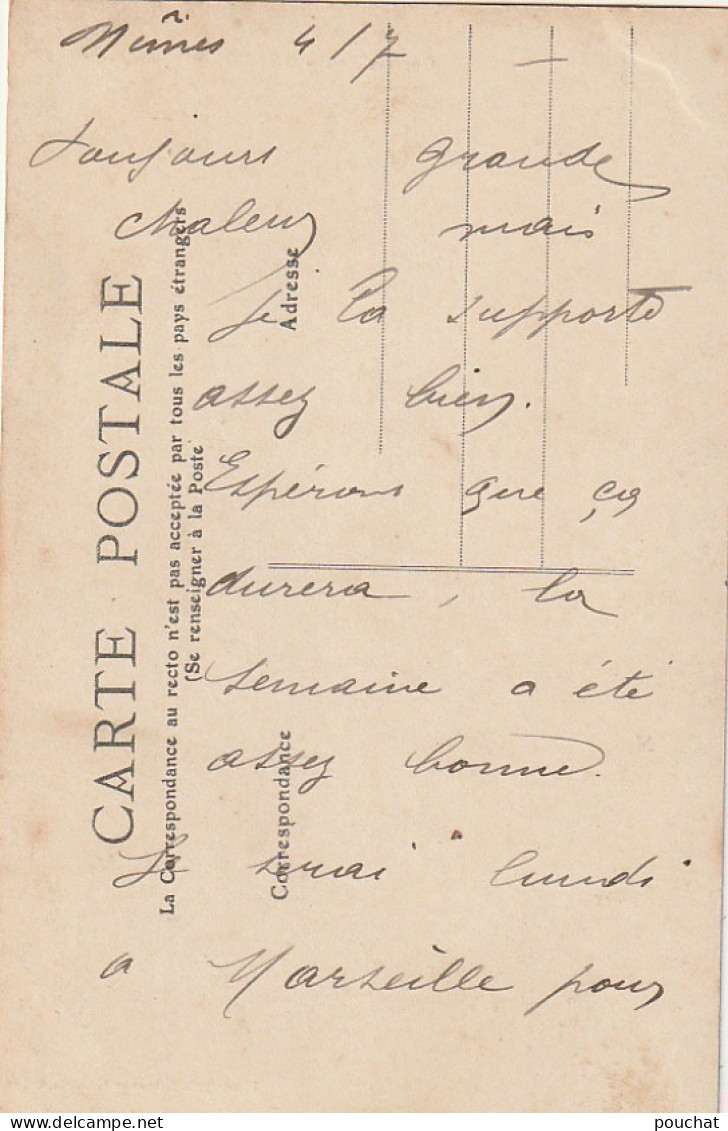 Nîmes 4/7 –
Toujours grande
chaleur mais
Je la supporte
assez bien.
Espérons que ça
durera, la
semaine a été
assez bonne.
Je srai lundi
a Marseille pour
CARTE POSTALE
La Correspondance au recto n'est pas acceptée par tous les pays étrangers
(Se renseigner à la Poste
Correspondance
Adresse
pouchat